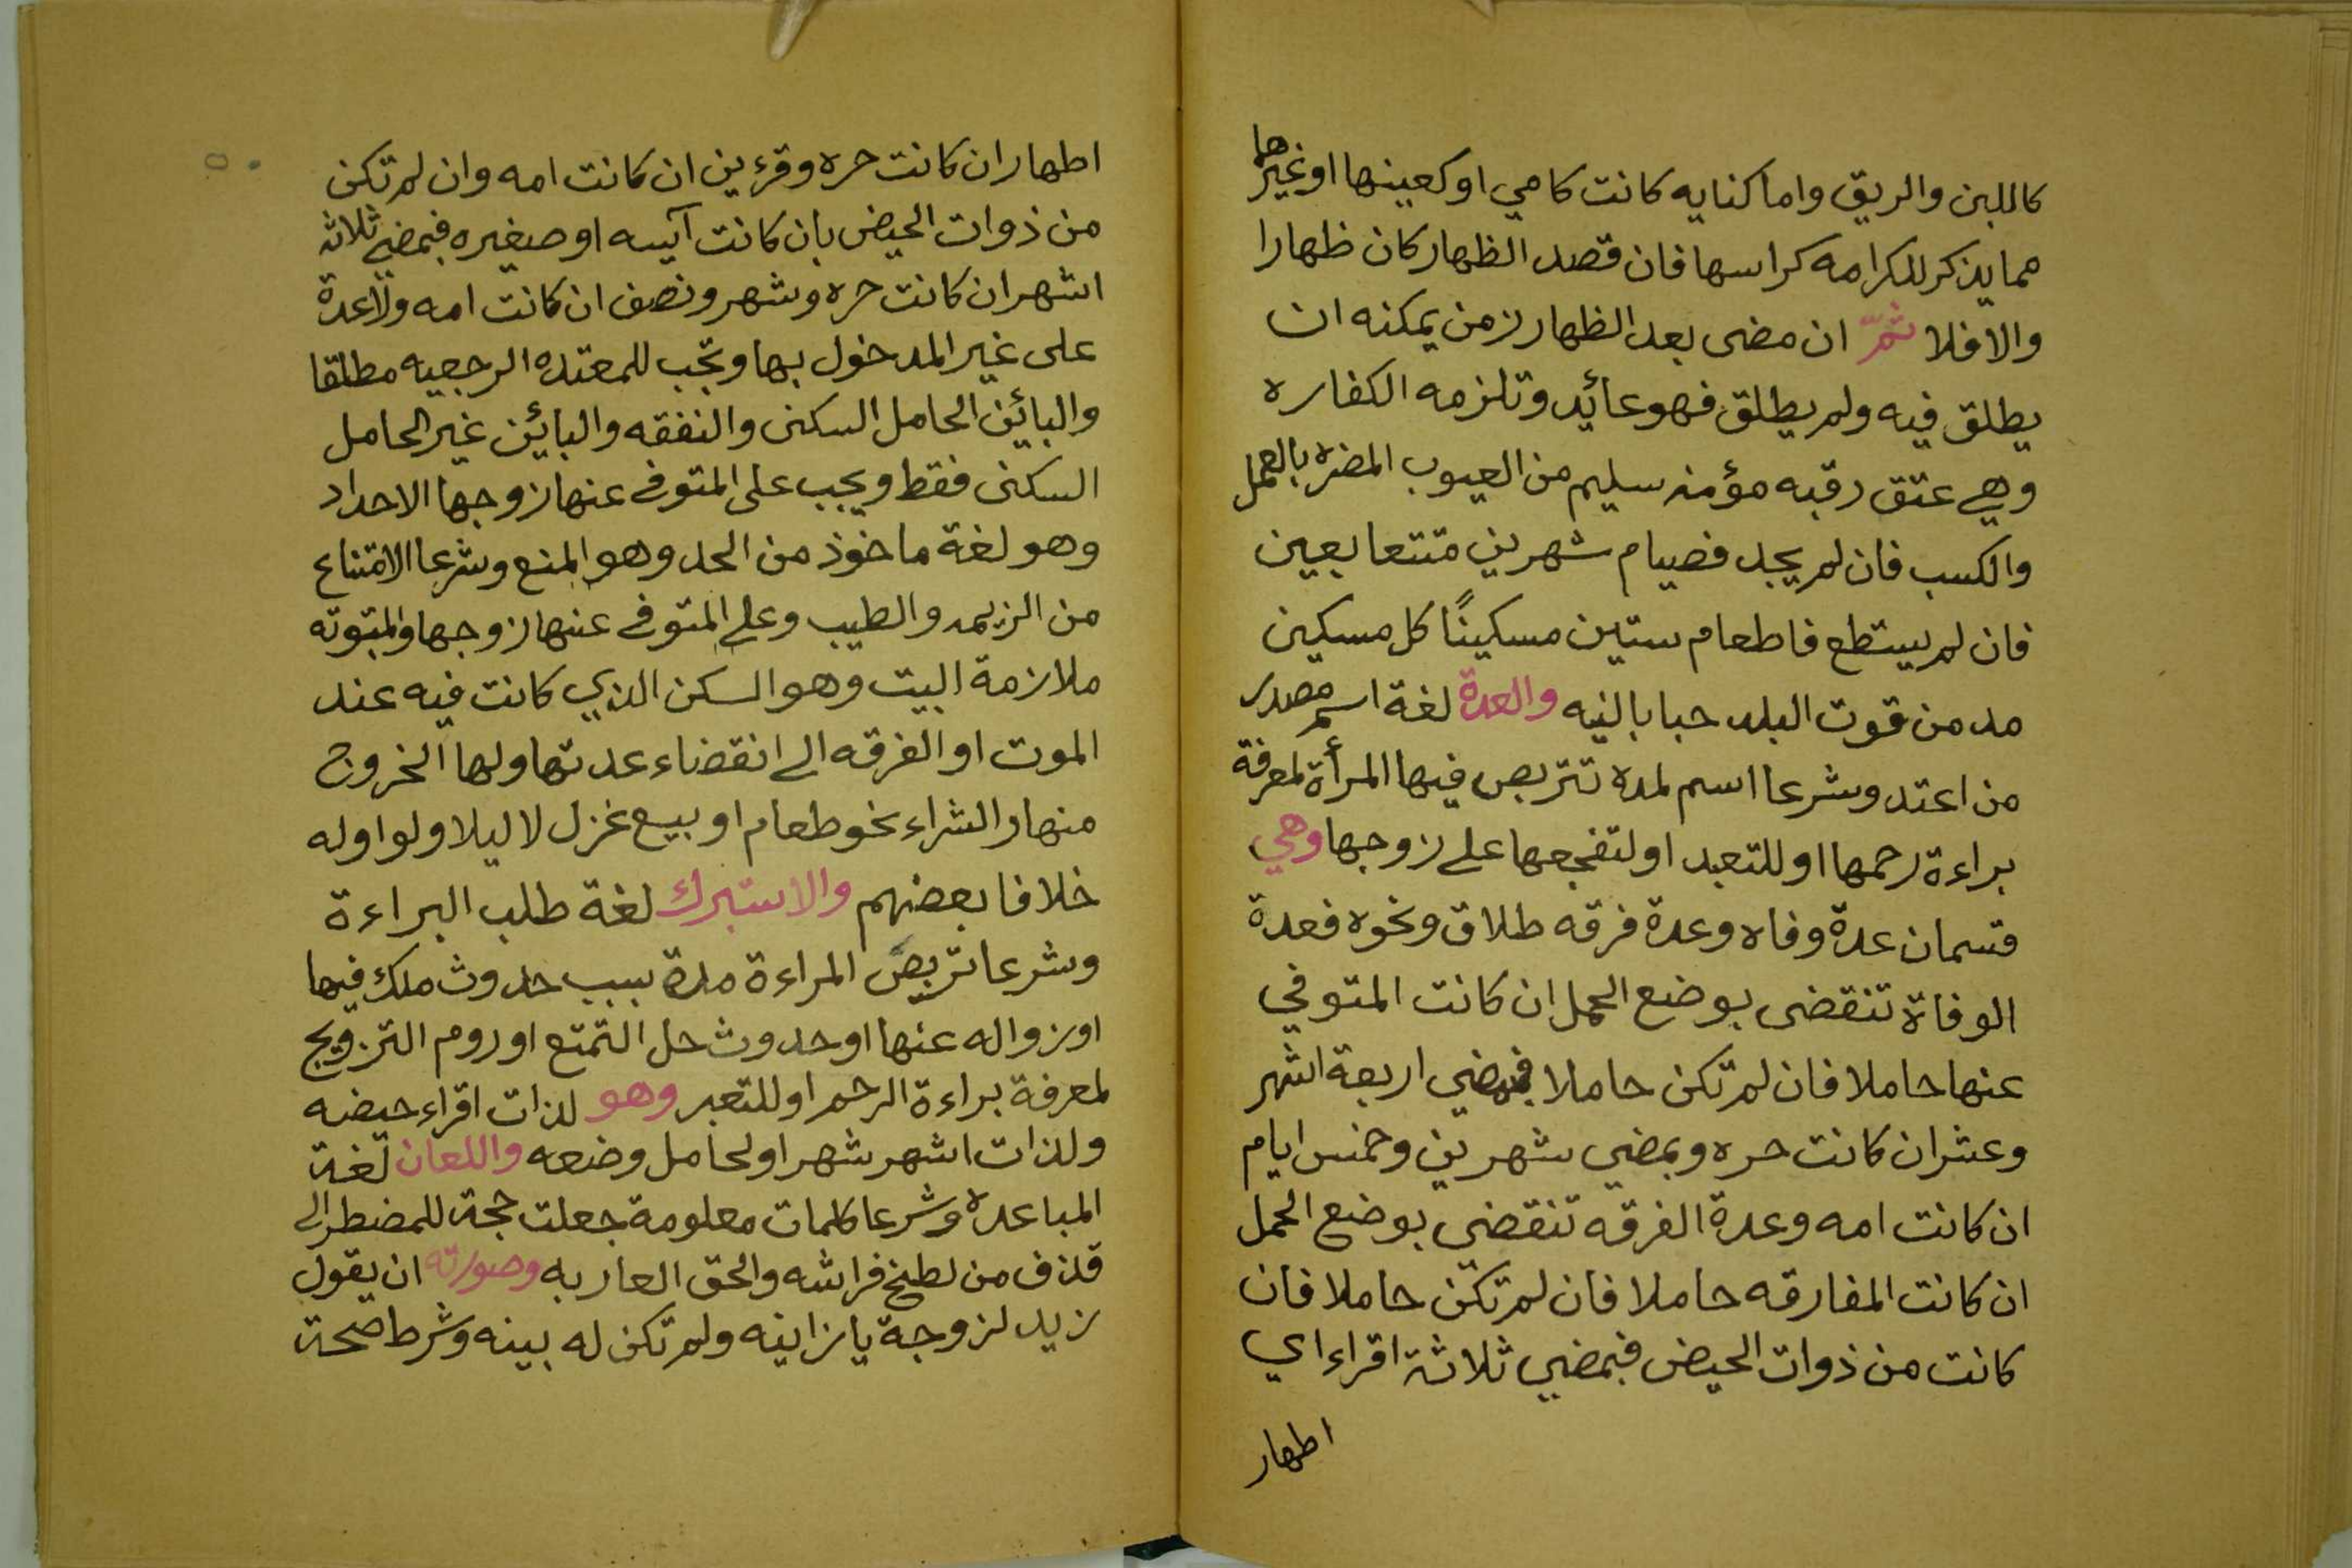 كاللبن والريق واما كنايه كانت كامي او كعينها او غيرها
مما يذكر للكرامه كراسها فان قصد الظهار كان ظهارا
والا فلا ثمّ ان مضى بعد الظهار زمن يمكنه ان
يطلق فيه ولم يطلق فهو عائد وتلزمه الكفاره
وهي عتق رقبه مؤمنه سليم من العيوب المضره بالعمل
والكسب فان لم يجد فصيام شهرين متتعابعين
فان لم يستطع فاطعام ستين مسكينًا كل مسكين
مد من قوت البلد حبا بالنيه والعدة لغة اسم مصدر
من اعتد وشرعا اسم لمده تتربص فيها المرأة لمعرفة
براءة رحمها او للتعبد او لتفجعها على زوجها وهي
قسمان عدة وفاه وعدة فرقه طلاق ونحوه فعدة
الوفاة تنقضى بوضع الحمل ان كانت المتوفي
عنها حاملا فان لم تكن حاملا فبمضي اربعة اشهر
وعشر ان كانت حره وبمضي شهرين وخمس ايام
ان كانت امه وعدة الفرقه تنقضي بوضع الحمل
ان كانت المفارقه حاملا فان لم تكن حاملا فان
كانت من ذوات الحيض فبمضي ثلاثة اقراء اي
اطهار
اطهار ان كانت حره وقرءين ان كانت امه وان لم تكن
من ذوات الحيض بان كانت آيسه او صغيره فبمضي ثلاثه
اشهر ان كانت حره وشهر ونصف ان كانت امه ولا عدة
على غير المدخول بها وتجب للمعتده الرجعيه مطلقا
والبائن الحامل السكنى والنفقه والبائن غير الحامل
السكنى فقط ويجب على المتوفى عنها زوجها الاحداد
وهو لغة ماخوذ من الحد وهو المنع وشرعا الامتناع
من الزينه والطيب وعلى المتوفى عنها زوجها والمبتوته
ملازمة البيت وهو السكن الذي كانت فيه عند
الموت او الفرقه الى انقضاء عدتها ولها الخروج
منهار الشراء نحو طعام او بيع غزل لا ليلا ولو اوله
خلافا بعضهم والاستبرك لغة طلب البراءة
وشرعا تربص المراءة مدة بسبب حدوث ملك فيها
او زواله عنها او حدوث حل التمتع او روم التزويج
لمعرفة براءة الرحم او للتعبد وهو لذات اقراء حيضه
ولذات اشهر شهر او لحامل وضعه واللعان لغة
المباعده وشرعا كلمات معلومة جعلت حجة للمضطر الى
قذف من لطخ فراشه والحق العار به وصورته ان يقول
زيد لزوجة يا زانيه ولم تكن له بينه وشرط صحة